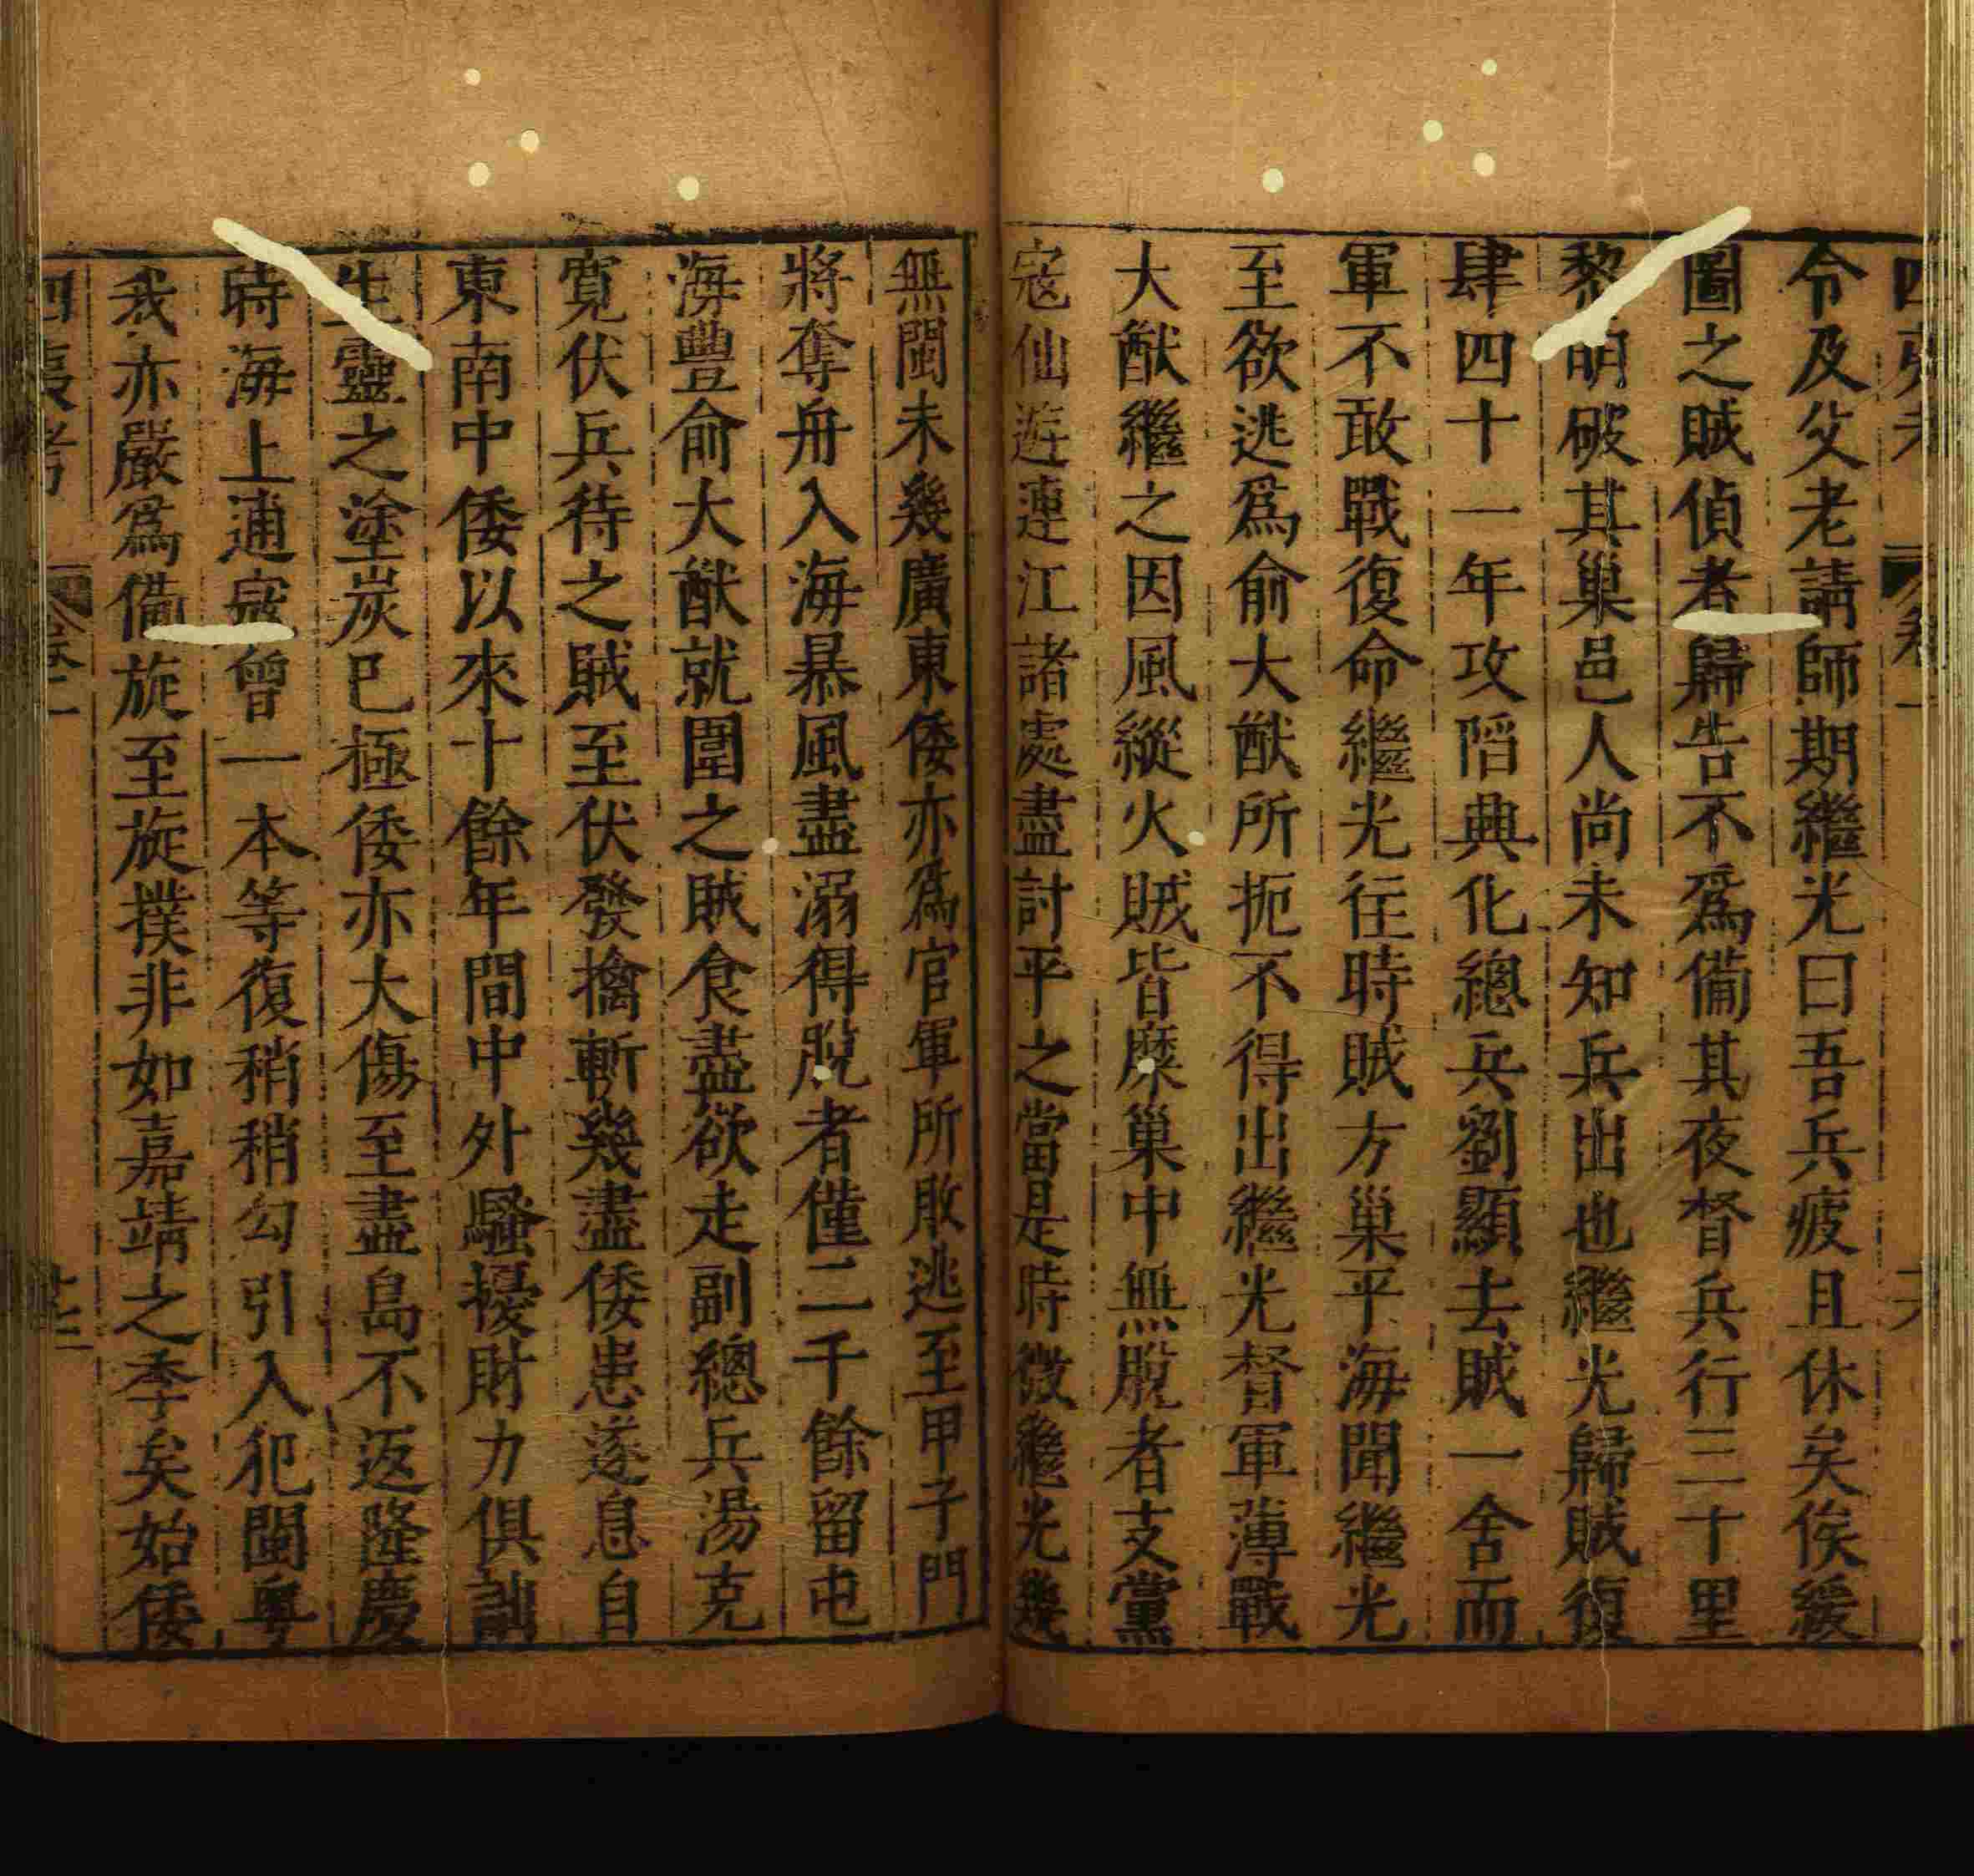 令及父老請師期繼光曰吾兵疲且休矣俟緩
圖之賊偵者歸告不爲備其夜督兵行三十里
黎明破其巢邑人尚未知兵出也繼光歸賊復
肆四十一年攻陷興化總兵劉顯去賊一舍而
軍不敢戰復命繼光往時賊方巢平海聞繼光
至欲逃爲俞大猷所扼不得出繼光督軍薄戰
大猷繼之因風縱火賊皆糜巢中無脫者支黨
寇仙遊連江諸處盡討平之當是時微繼光幾
無閩未幾廣東倭亦爲官軍所敗逃至甲子門
將奪舟入海暴風盡溺得脫者僅二千餘留屯
海豐俞大猷就圍之賊食盡欲走副總兵湯克
寬伏兵待之賊至伏發擒斬幾盡倭患遂息自
東南中倭以來十餘年間中外騷擾財力俱詘
生靈之塗炭已極倭亦大傷至盡島不返隆慶
時海上逋寇曾一本等復稍稍勾引入犯閩粵
我亦嚴爲備旋至旋撲非如嘉靖之季矣始倭
四夷考 卷二